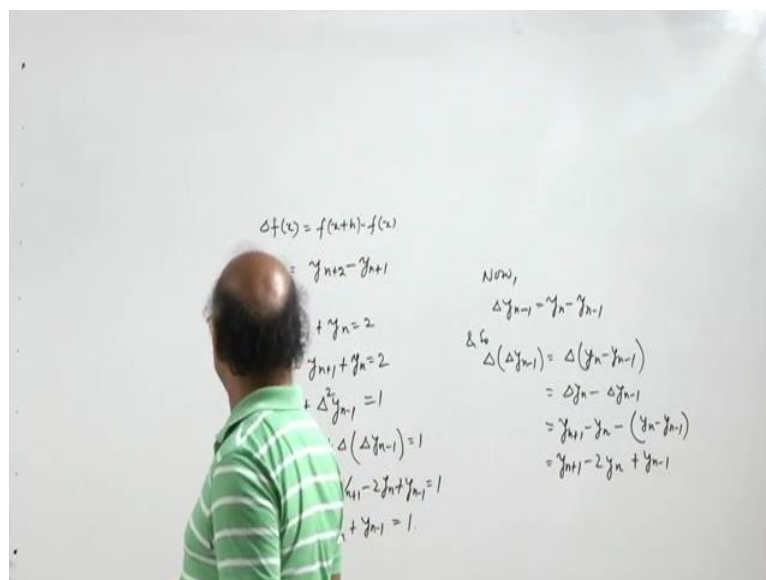 Δf(x) = f(x+h) - f(x)
= y_{n+2} - y_{n+1}
+ y_n = 2
y_{n+1} + y_n = 2
+ Δ²y_{n-1} = 1
Δ(Δy_{n-1}) = 1
_{n+1} - 2y_n + y_{n-1} = 1
+ y_{n-1} = 1.
Now,
Δy_{n-1} = y_n - y_{n-1}
&
Δ(Δy_{n-1}) = Δ(y_n - y_{n-1})
= Δy_n - Δy_{n-1}
= y_{n+1} - y_n - (y_n - y_{n-1})
= y_{n+1} - 2y_n + y_{n-1}